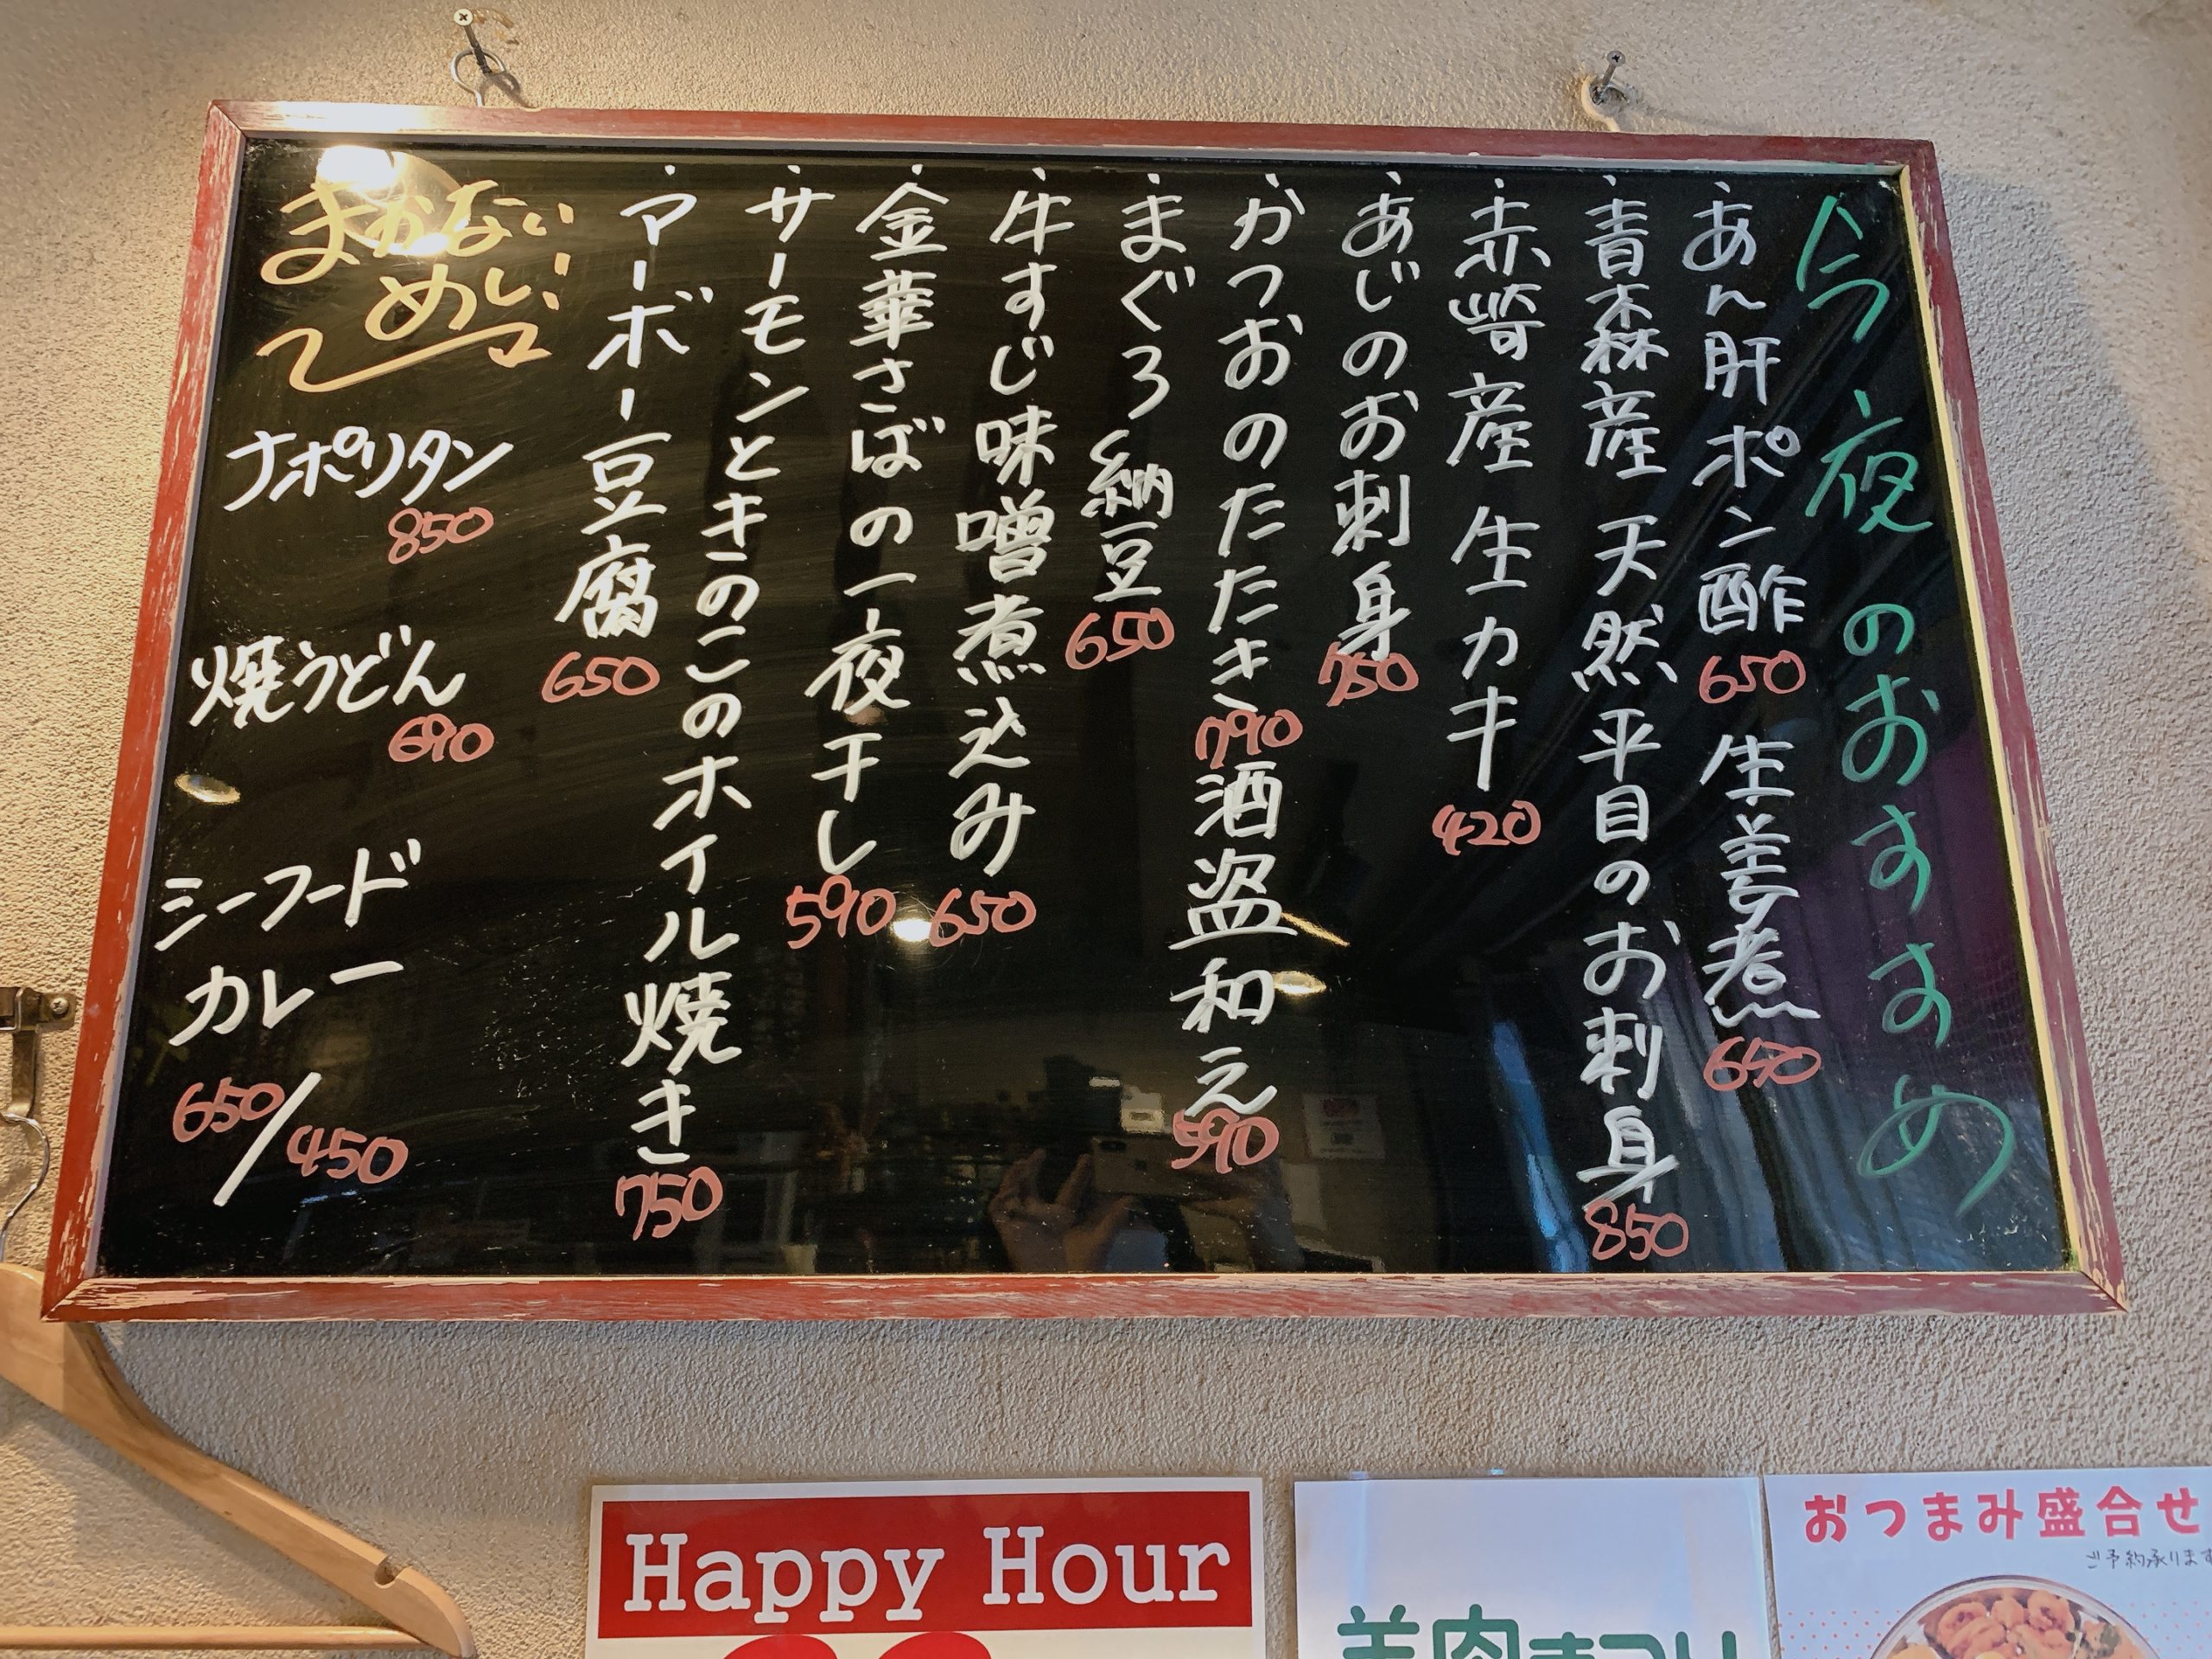 今夜のおすすめ
・あん肝ポン酢 650 生姜煮 650
・青森産 天然平目のお刺身 850
・赤崎産 生カキ 420
・あじのお刺身 750
・かつおのたたき 790 酒盗和え 590
・まぐろ納豆 650
・牛すじ味噌煮込み 650
・金華さばの一夜干し 590
・サーモンときのこのホイル焼き 750
・マーボー豆腐 650
まかない
めし!
ナポリタン
850
焼うどん
690
シーフード
カレー
650/450
Happy Hour
羊肉まつり
おつまみ盛合せ
ご予約承ります